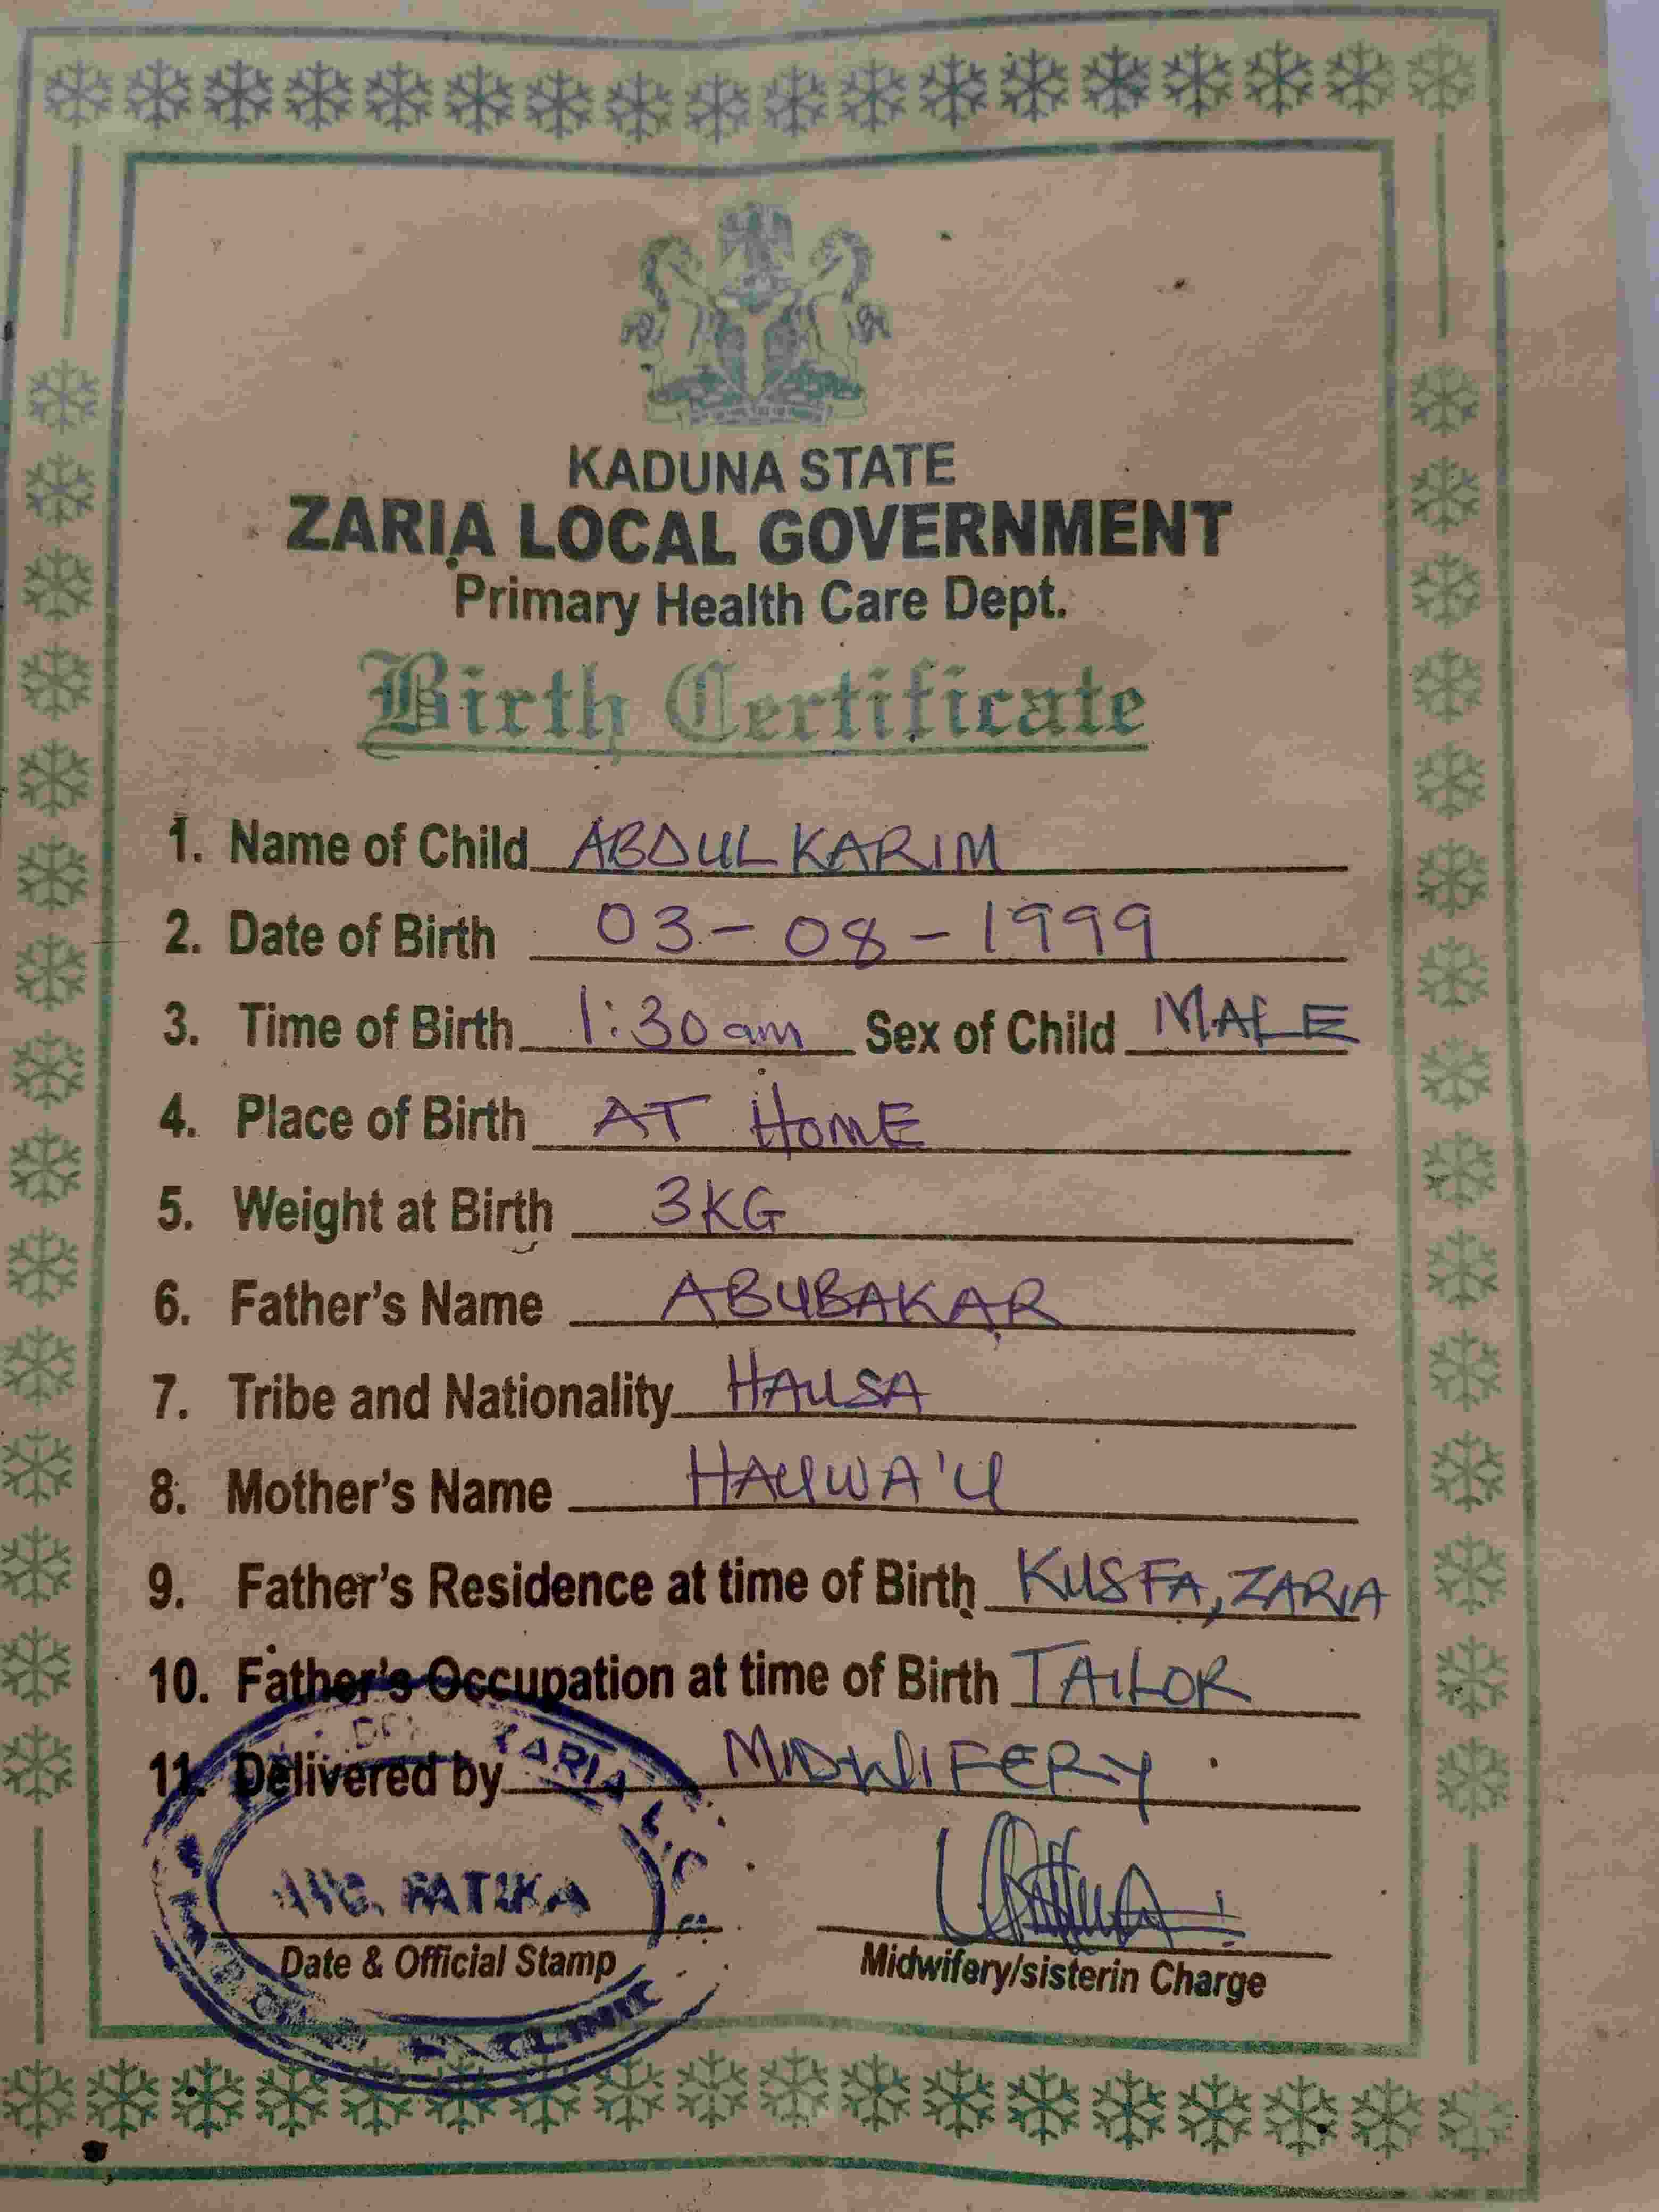 KADUNA STATE
ZARIA LOCAL GOVERNMENT
Primary Health Care Dept.
Birth Certificate
1. Name of Child ABDULKARIM
2. Date of Birth 03-08-1999
3. Time of Birth 1:30am Sex of Child MALE
4. Place of Birth AT HOME
5. Weight at Birth 3KG
6. Father's Name ABUBAKAR
7. Tribe and Nationality HAUSA
8. Mother's Name HAUWA'U
9. Father's Residence at time of Birth KUSFA, ZARIA
10. Father's Occupation at time of Birth TAILOR
11. Delivered by MIDWIFERY
ZARIA
FATIKA
Date & Official Stamp
Midwifery/sisterin Charge
CLINIC